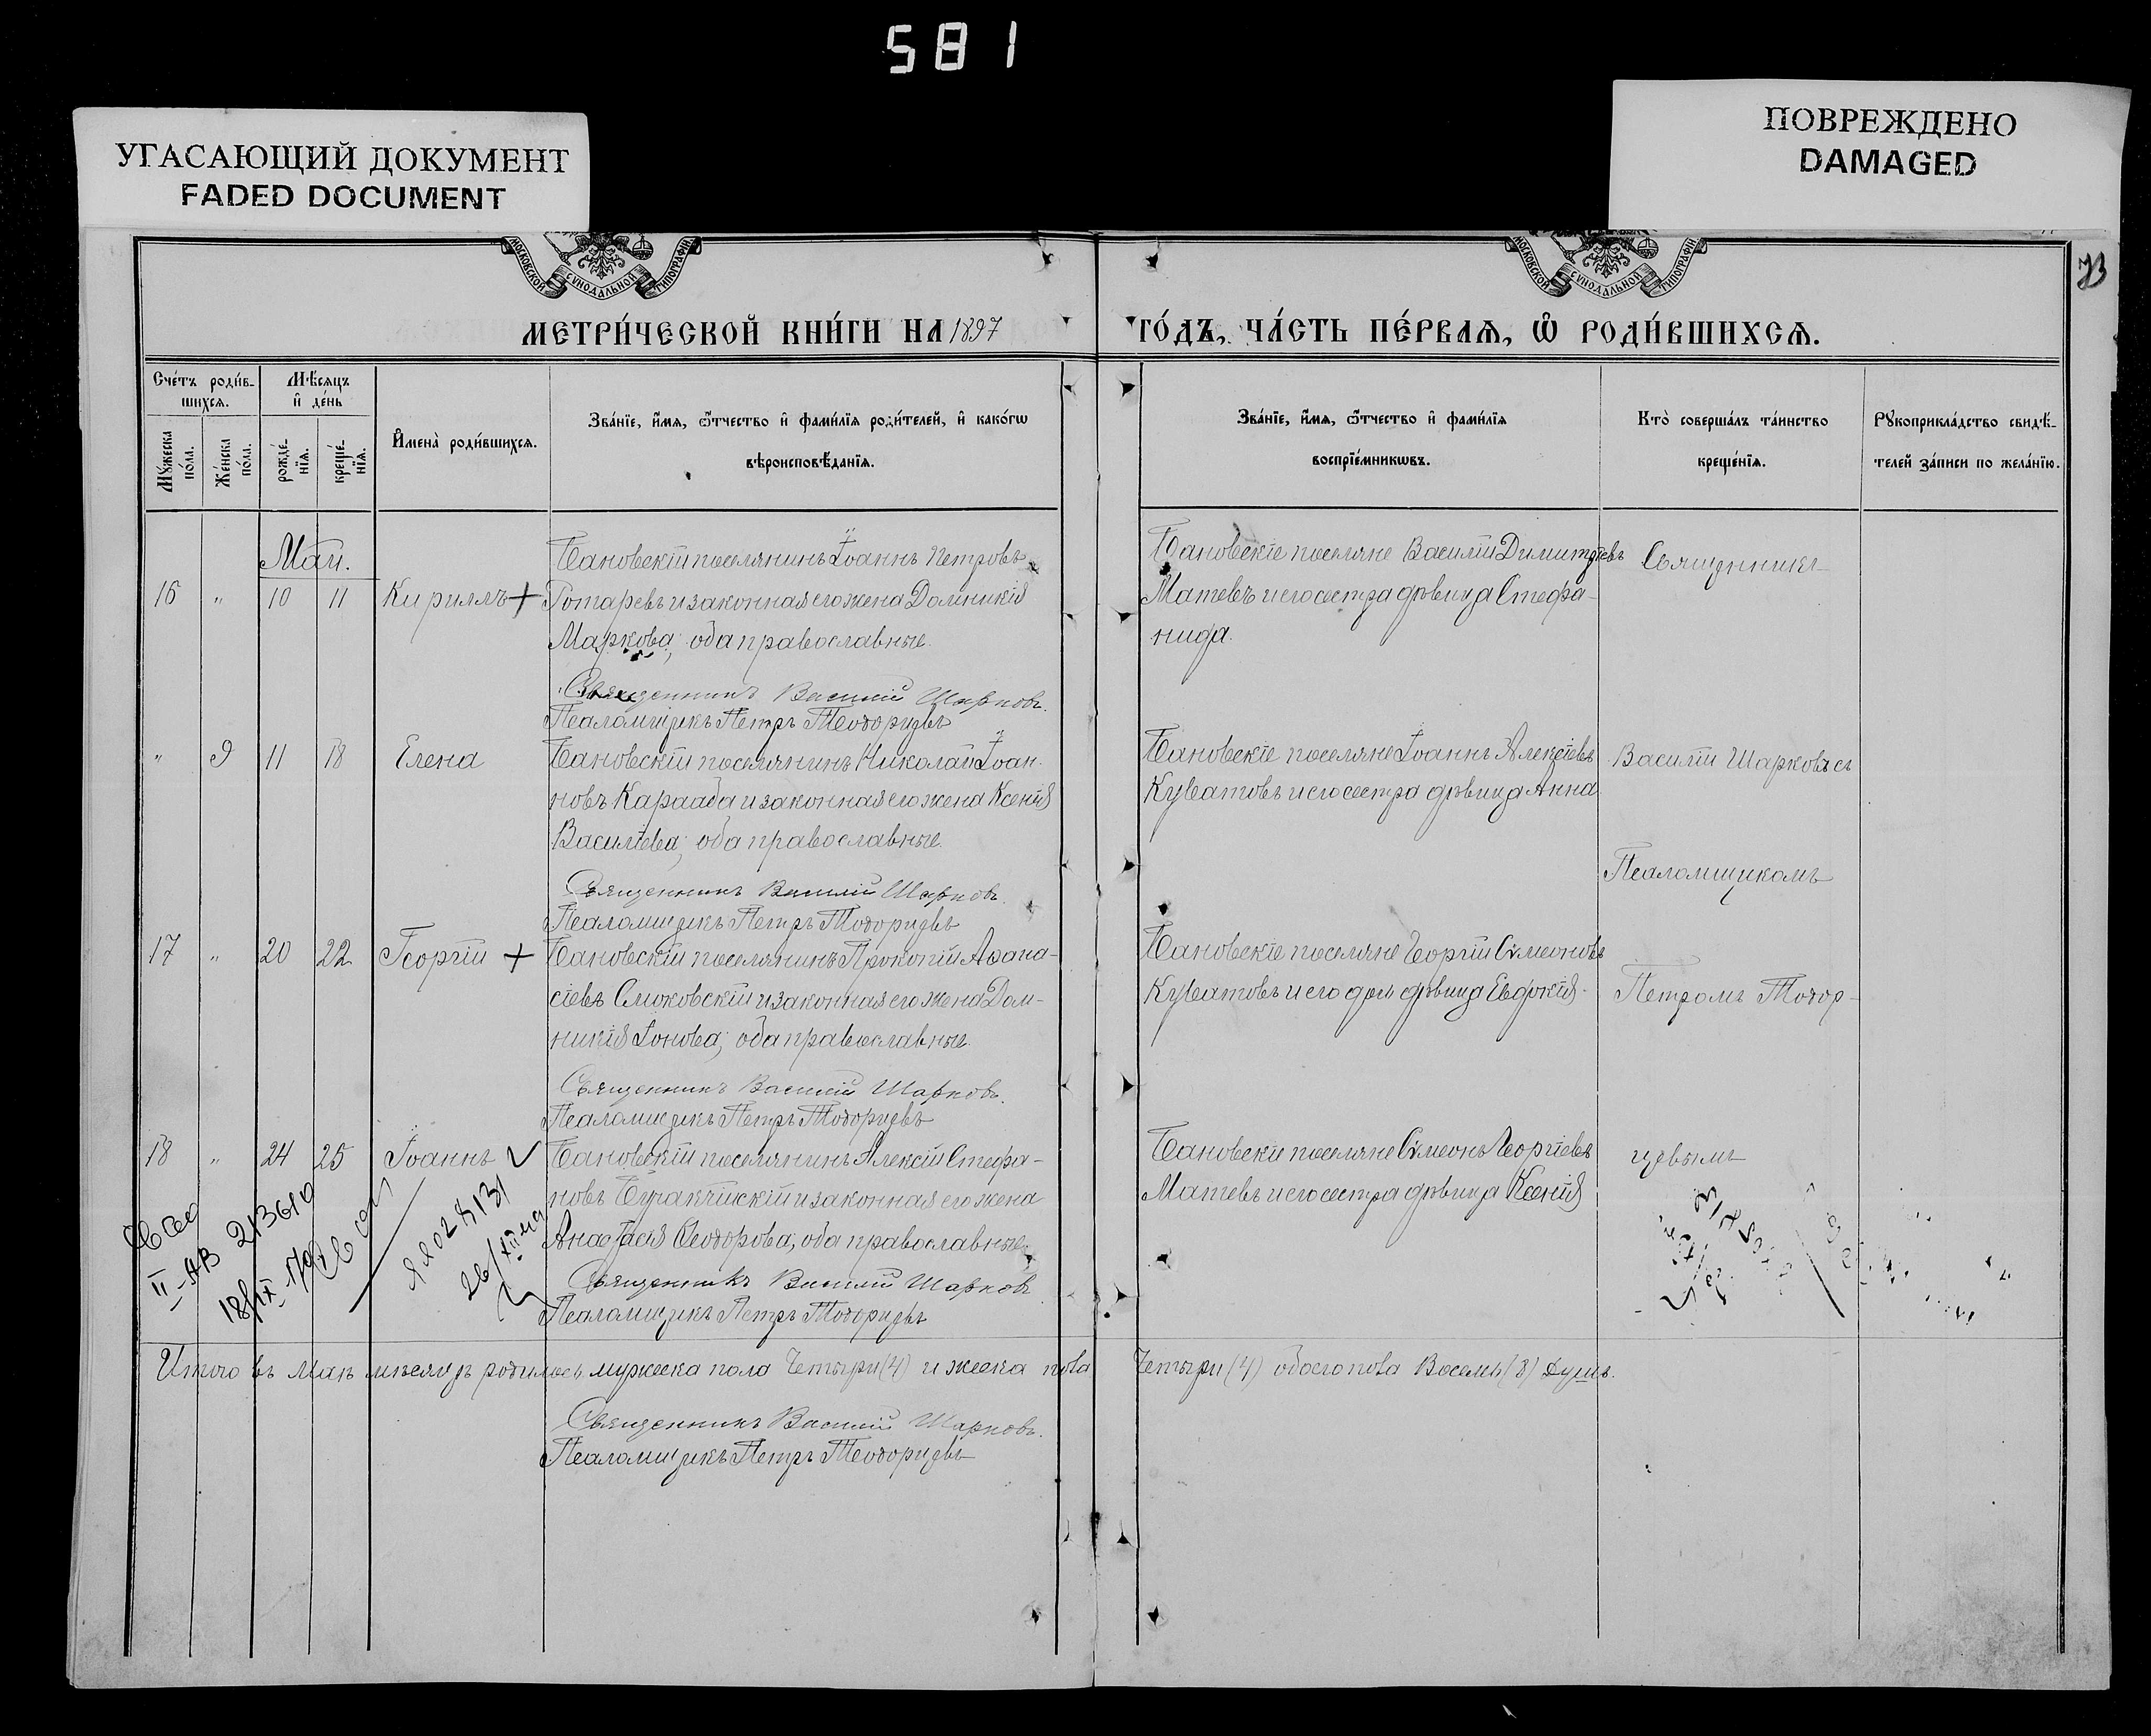 581
УГАСАЮЩИЙ ДОКУМЕНТ
FADED DOCUMENT
ПОВРЕЖДЕНО
DAMAGED
МОСКОВСКОЙ СУНОДАЛЬНОЙ ТИПОГРАФІИ
МОСКОВСКОЙ СУНОДАЛЬНОЙ ТИПОГРАФІИ
73
МЕТРИ́ЧЕСКОЙ КНИ́ГИ НА 1897
ГО́ДЪ, ЧА́СТЬ ПЕ́РВАЯ, Ѡ РОДИ́ВШИХСЯ.
Сче́тъ роди́в-
шихся.
Мѣ́сяцъ
и де́нь
Му́жеска
по́ла.
Же́нска
по́ла.
рожде́-
нїя.
креще́-
нїя.
Имена̀ роди́вшихся.
Зва́нїе, и́мя, ѻ́тчество и фами́лїя роди́телей, и како́гѡ
вѣроисповѣ́данїя.
Зва́нїе, и́мя, ѻ́тчество и фами́лїя
воспрїе́мникѡвъ.
Кто̀ соверша́лъ та́инство
креще́нїя.
Рꙋкоприкла́дство свидѣ́-
телей за́писи по жела́нїю.
Май.
16 " 10 11 Кириллъ +
Бановскій поселянинъ Іоаннъ Петровъ
Ротаревъ и законная его жена Домникія
Маркова; оба православные.
Священникъ Василій Шарковъ.
Псаломщикъ Петръ Теодорцевъ
Бановскіе поселяне Василій Димитріевъ
Матевъ и его сестра дѣвица Стефа-
нида.
Священникъ
" 9 11 18 Елена
Бановскій поселянинъ Николай Іоан-
новъ Караада и законная его жена Ксенія
Василіева; оба православные.
Священникъ Василій Шарковъ.
Псаломщикъ Петръ Тодорцевъ
Бановскіе поселяне Іоаннъ Алексіевъ
Куватовъ и его сестра дѣвица Анна
Василій Шарковъ съ
Псаломщикомъ
17 " 20 22 Георгій +
Бановскій поселянинъ Прокопій Аѳана-
сіевъ Смоковскій и законная его жена Дом-
никія Іонова; оба православные.
Священникъ Василій Шарковъ.
Псаломщикъ Петръ Тодорцевъ
Бановскіе поселяне Георгій Сѵмеоновъ
Куватовъ и его дочь дѣвица Евдокія
Петромъ Тодор-
18 " 24 25 Іоаннъ
Бановскій поселянинъ Алексій Стефа-
новъ Буракчійскій и законная его жена
Анастасія Ѳеодорова; оба православные
Священникъ Василій Шарковъ
Псаломщикъ Петръ Тодорцевъ
Бановскіе поселяне Сѵмеонъ Георгіевъ
Матевъ и его сестра дѣвица Ксенія
цевымъ
II-АВ 213619
Итого въ маѣ мѣсяцѣ родилось мужеска пола Четыри (4) и женска пола Четыри (4) обоего пола Восемь (8) душъ.
Священникъ Василій Шарковъ.
Псаломщикъ Петръ Теодорцевъ